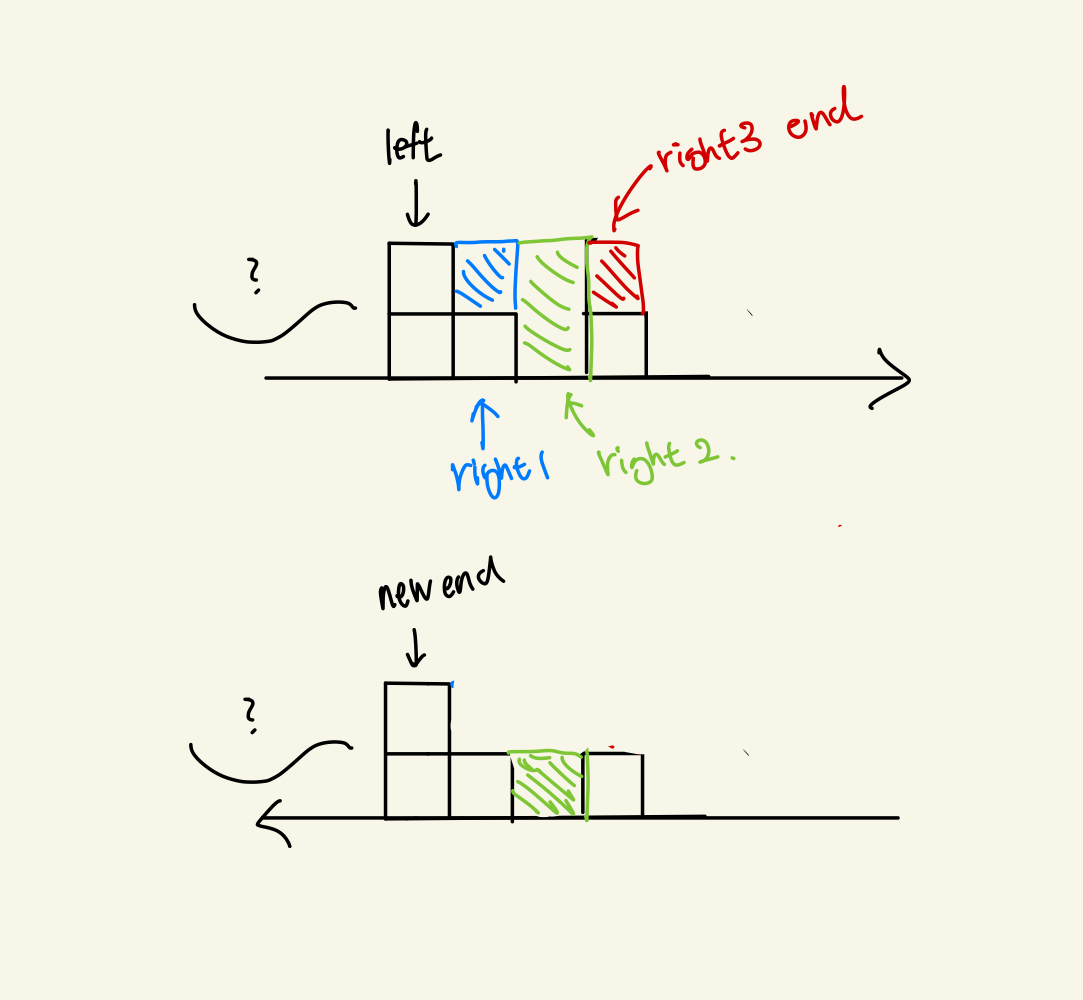 left
right3 end
?
right1
right2.
new end
?